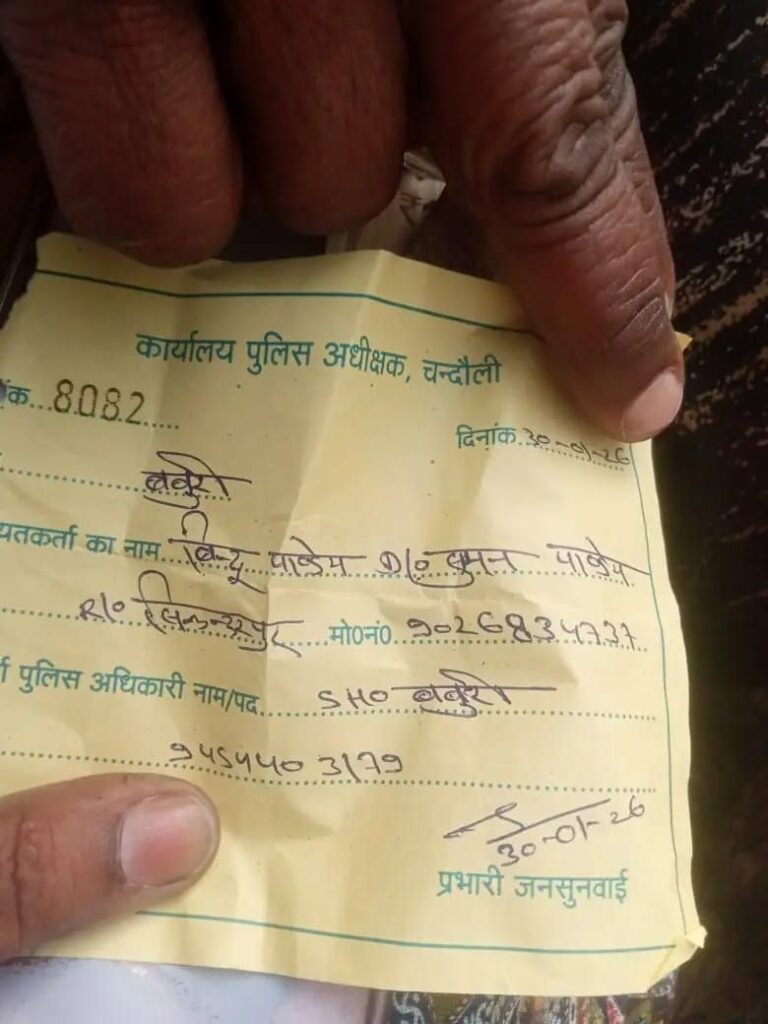 कार्यालय पुलिस अधीक्षक, चन्दौली
क...8082
दिनांक.30-01-26
बबुरी
यतकर्ता का नाम. बिन्दू पाण्डेय D/o सुमन पाण्डेय
R/o सिकन्दरपुर मो0नं0. 9026834737
पुलिस अधिकारी नाम/पद. SHO बबुरी
9454403179
30-01-26
प्रभारी जनसुनवाई